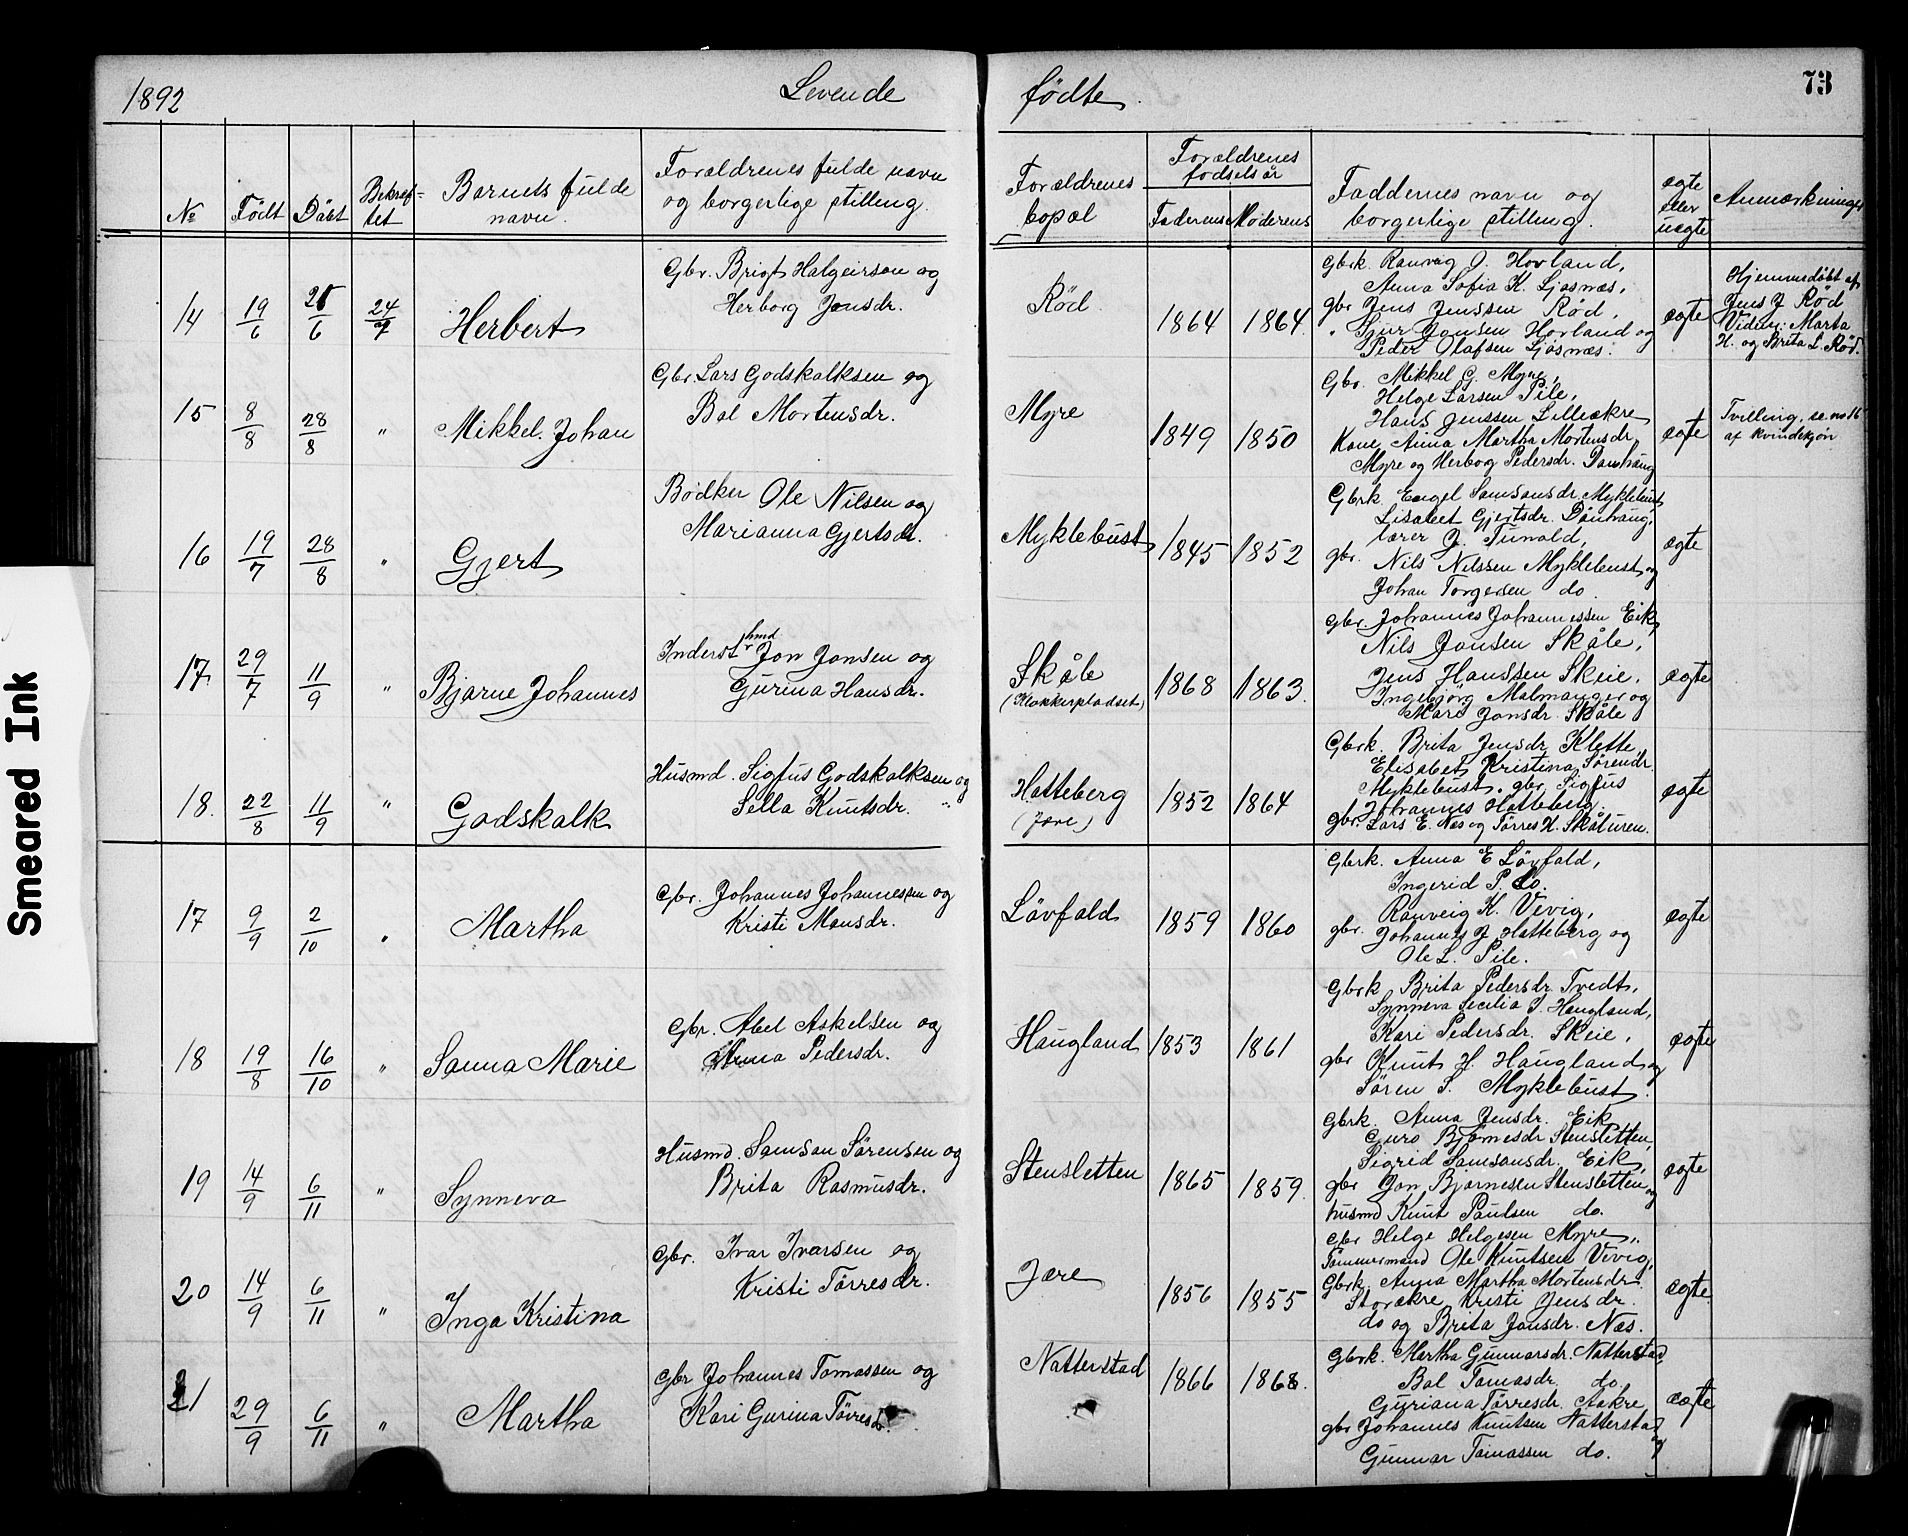 1892
Levende
födte.
73
Smeared Ink
No
Födt
Döbt
Bekræf-
tet
Barnets fulde
navn.
Forældrenes fulde navn
og borgerlige stilling.
Forældrenes
bopæl
Forældrenes
fødselsår
Faderens
Moderens
Faddernes navn og
borgerlige stilling.
ægte
eller
uægte
Anmærkninger
14 19/6 25/6 24/7 Herbert
Gbr. Brigt Halgeirson og
Herborg Jonsdr.
Röd 1864 1864.
Gbrk. Ranvag J. Hovland,
Anna Sofia K. Ljosnæs,
gbr Jens Jenssen Röd,
" Sjur Jonsen Hovland og
Peder Olafsen Ljosnæs.
ægte
Hjemmedöbt af
Jens J Röd
Vidner: Marta
H. og Brita L. Röd.
15 8/8 28/8 " Mikkel. Johan
Gbr. Lars Godskalksen og
Bol Mortensdr.
Myre 1849 1850
Gbr. Mikkel G. Myre,
Helge Larsen Pile,
Hans Jenssen Lilleækre
Kone Anna Martha Mortensdr.
Myre og Herbog Pedersdr. Dönhaug
ægte
Tvilling, se no 16
af kvindekjön
16 19/7 28/8 " Gjert
Bödker Ole Nilsen og
Marianna Gjertsdr.
Myklebust 1845 1852
Gbrk. Engel Samsonsdr. Myklebust,
Lisabet Gjertsdr. Dönhaug,
lærer J. Tunold,
gbr. Nils Nilssen Myklebust og
Johan Torgersen do.
ægte
17. 29/7 11/9 " Bjarne Johannes
Inderst hmd Jon Jonsen og
Gurina Hansdr.
Skåle
(Klokkerpladset)
1868 1863.
gbr. Johannes Johannessen Eik,
Nils Jonsen Skåle,
Jens Hanssen Skeie,
Ingebjörg Malmanger og
Mari Jonsdr. Skåle
ægte
18. 22/8 11/9 " Godskalk
Husmd. Sigfus Godskalksen og
Sella Knutsdr. "
Hatteberg
(Jære)
1852 1864
Gbrk. Brita Jensdr. Klette,
Elisabet Kristina Sörendr.
Myklebust. gbr. Sigfus
Johannes Hatteberg.
gbr. Lars E. Næs og Törres H. Skåluren.
ægte
17 9/9 2/10 " Martha
Gbr. Johannes Johannessen og
Kristi Monsdr.
Lövfald 1859 1860
Gbrk. Anna E Lövfald,
Ingerid P. do.
Ranveig K. Vivig,
gbr. Johannes J. Hatteberg og
Ole L. Pile.
ægte
18 19/8 16/10 " Sanna Marie
Gbr. Abel Askelsen og
Anna Pedersdr.
Haugland 1853 1861
Gbrk Brita Pedersdr. Tvedt,
Synneva Secilia J. Haugland,
Kari Pedersdr. Skeie,
gbr Knut H. Haugland og
Sören S. Myklebust.
ægte
19 14/9 6/11 " Synneva
Husmd. Samson Sörensen og
Brita Rasmusdr.
Stensletten 1865 1859.
Gbrk. Anna Jensdr. Eik
Guro Björnesdr Stensletten,
Sigrid Samsonsdr. Eik,
gbr Jon Bjarnesen Stensletten og
husmd Knut Paulsen do.
ægte
20 14/9 6/11 " Inga Kristina
Gbr. Ivar Ivarsen og
Kristi Törresdr.
Jære 1856 1855
Gbr Helge Helgesen Myre,
Tömmermand Ole Knutsen Vivig,
Gbrk. Anna Martha Mortensdr.
Storækre Kristi Jensdr.
do og Brita Jonsdr. Næs.
ægte
21 29/9 6/11 " Martha
Gbr Johannes Tomassen og
Kari Gurina Törresdr.
Natterstad 1866 1868.
Gbrk. Martha Gunnarsdr. Natterstad,
Bol Tomasdr. do,
Guriana Törresdr. Aakre,
gbr Johannes Knutsen Natterstad og
Gunnar Tomassen do.
ægte